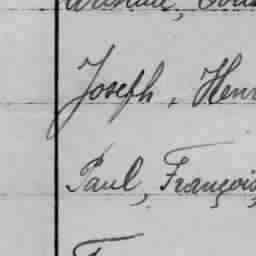 Joseph, Henr
Paul, François,